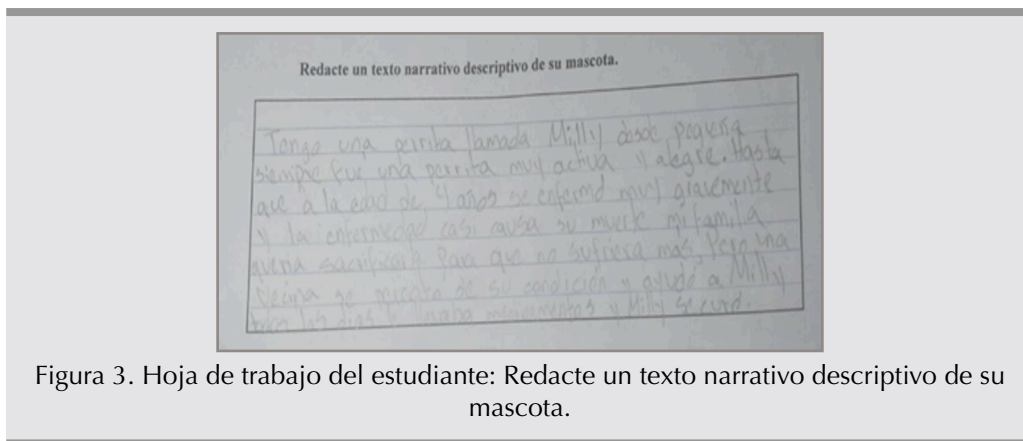 Redacte un texto narrativo descriptivo de su mascota.
Tengo una perrita llamada Milly desde pequeña
siempre fue una perrita muy activa y alegre. Hasta
que a la edad de 4 años se enfermó muy gravemente
y la enfermedad casi causa su muerte mi familia
quería sacrificarla Para que no sufriera mas, Pero una
Vecina se de su condición y ayudó a Milly
todos los días le llevaba medicamentos y Milly se curó.
Figura 3. Hoja de trabajo del estudiante: Redacte un texto narrativo descriptivo de su
mascota.